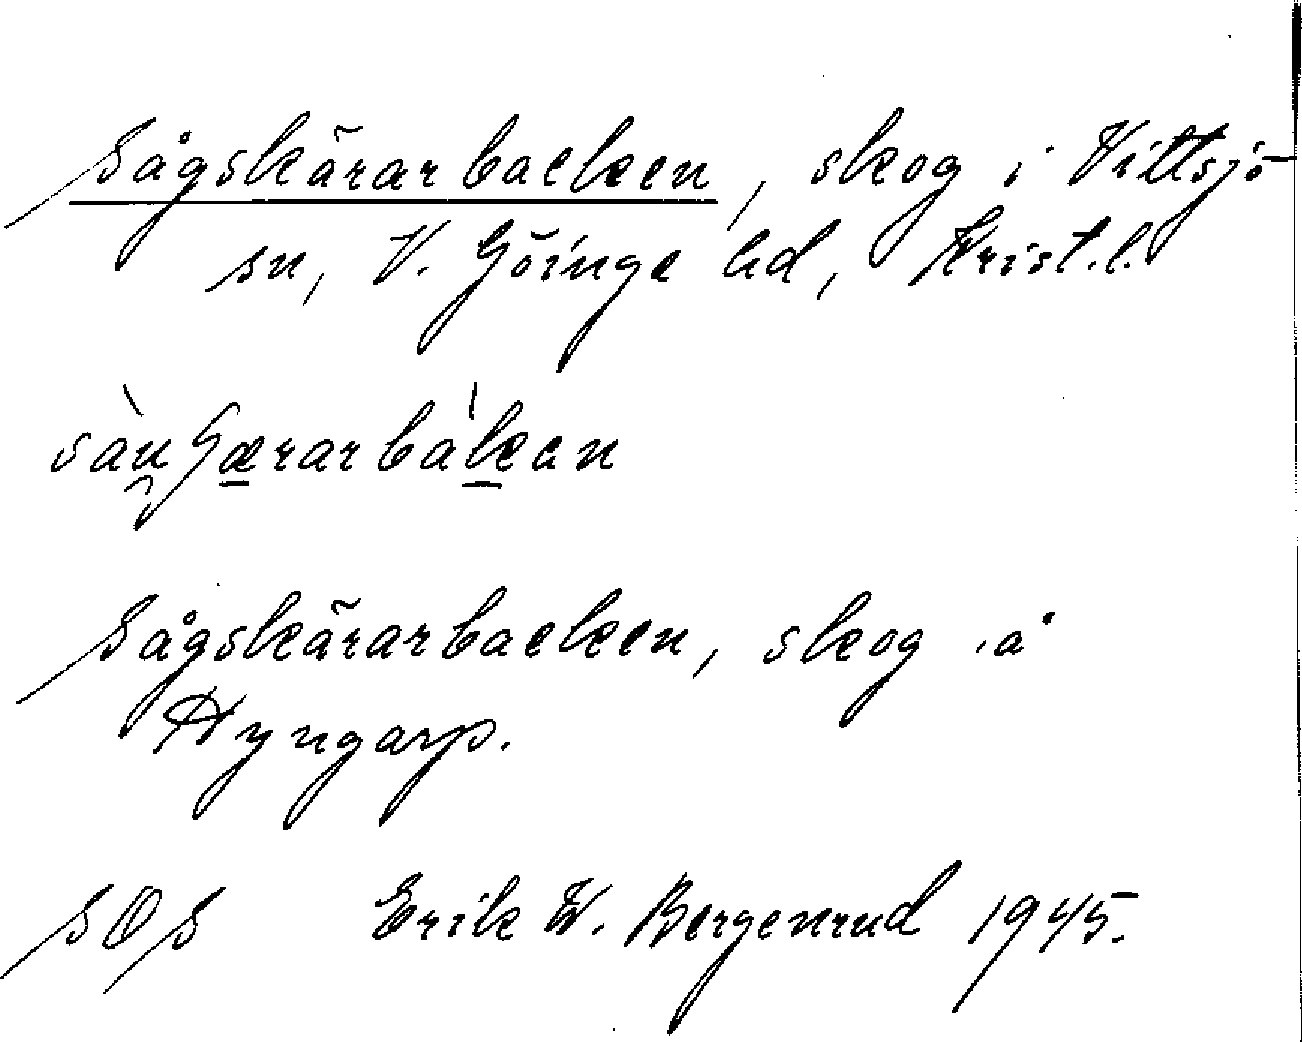 Sågskärarbacken, skog i Vittsjö
sn, V. Göinge hd, Krist. l.
Sågskärarbacken, skog å
Hyngarp.
SOS Erik W. Bergenrud 1945.